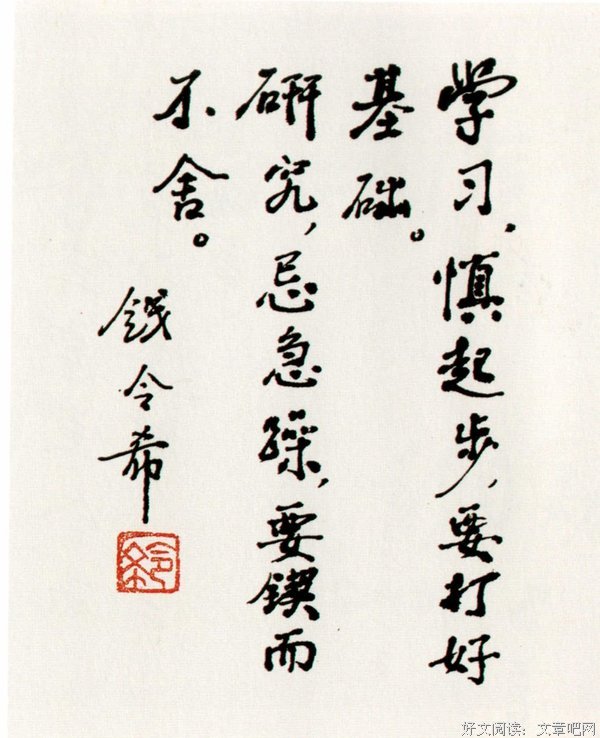 学习，慎起步，要打好
基础。
研究，忌急躁，要锲而
不舍。
钱令希
令希
好文阅读：文章吧网